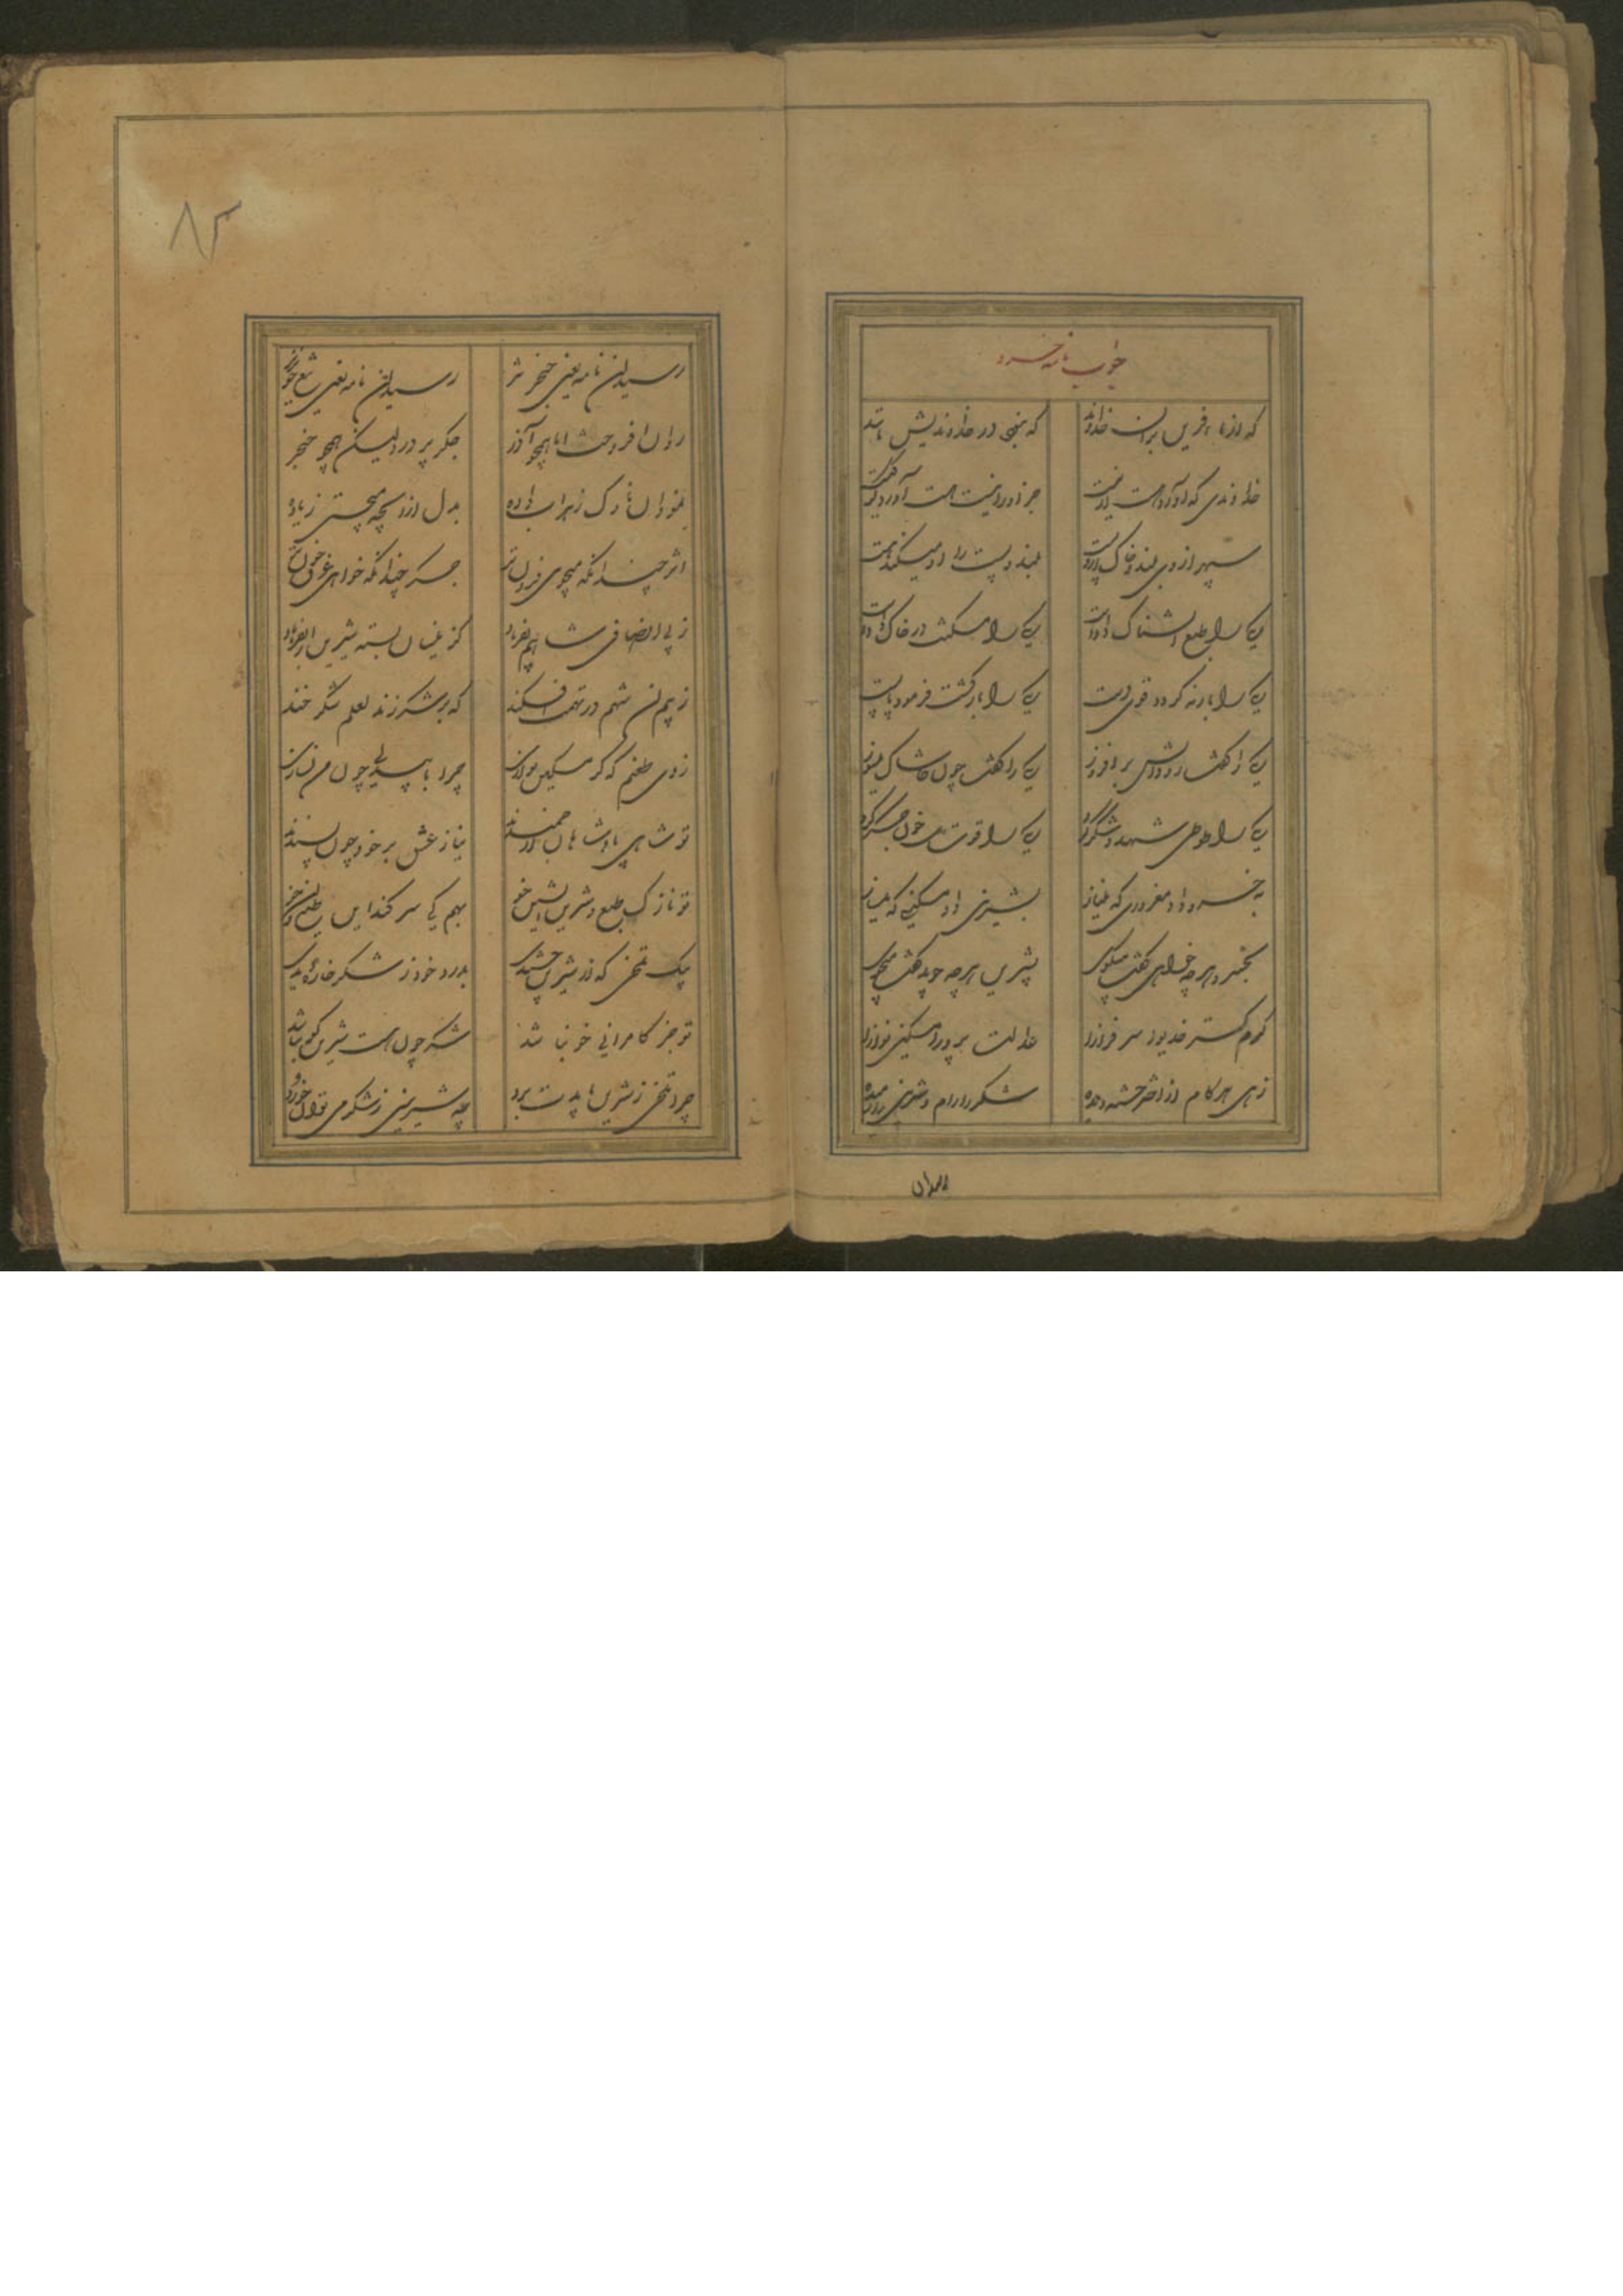 جواب نامه خسرو
که از ما آفرین بر آن خداوند که بیخ در خداوندیش مانند
خداوندی که او آورد هست از نیست جز او را نیست هست آورد
سپهر از وی بلند و خاک ازو پست بلند و پست را او میکند هست
یکی را طبع آتشناک داده است یکی را مسکنت در خاک داده است
یکی را بار نه کرد و قوی دست یکی را بارکش فرمود پابست
یکی را گفت رو آتش برافروز یکی را گفت چون خاشاک میسوز
یکی را طوطی شهد و شکر کرد یکی را قوت خون جگر کرد
به خسرو داد مغروری که میناز بشیرین داد مسکینی که
بخسرو هر چه خواهی گفت میگوی بشیرین هر چه جوید گفت میجوی
کرم گستر خدیو سرفراز عدالت پرور مسکین نوازا
زهی هر کام از لعلت چشیده شکر را رام و شیرین را رمیده
رسید آن
رسید آن نامه یعنی خنجر تیز رسید آن نامه یعنی تیغ خونریز
روان افروخت اما همچو آذر جگر پرور ولیکن همچو خنجر
نمود آن ناوک زهراب داده بدل از آنچه میجستی زیاده
اثر چندانکه میجوی فزون تر جگر چندانکه خواهی غرق خون تر
ز بی انصافی شاهم بفریاد کز اینسان بسته شیرین را بفرهاد
ز بهر آن شهم در تهمت افکند که بر شکر زند لعلم شکر خند
زدی طعنم که گر مسکین نوازی چرا با بیدلی چون من نسازی
تو شاهی پادشاهان ارجمندند نیاز عشق بر خود چون پسندند
تو نازک طبع و شیرین آتشین خو بهم کی سر کند این طبع و آن خو
بیک تلخی که از شیرین چشیدی بدرد خود ز شکر چاره دیدی
تو جز کامرانی خو نباشد شکر چون هست شیرین گو نباشد
چرا تلخی ز شیرین بایدت برد چو شیرینی ز شکر می توان خورد
۸۳